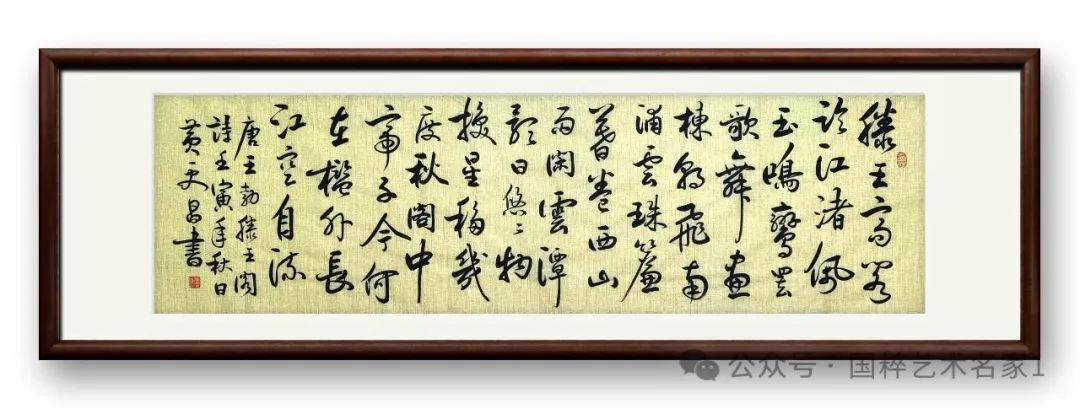 滕王高阁
临江渚佩
玉鳴鸞罢
歌舞畫
棟朝飛南
浦雲珠簾
暮卷西山
雨闲雲潭
影日悠〻物
換星移幾
度秋阁中
帝子今何
在檻外長
江空自流
唐王勃滕王阁
詩壬寅年秋日
黄文昌書
公众号·国粹艺术名家1